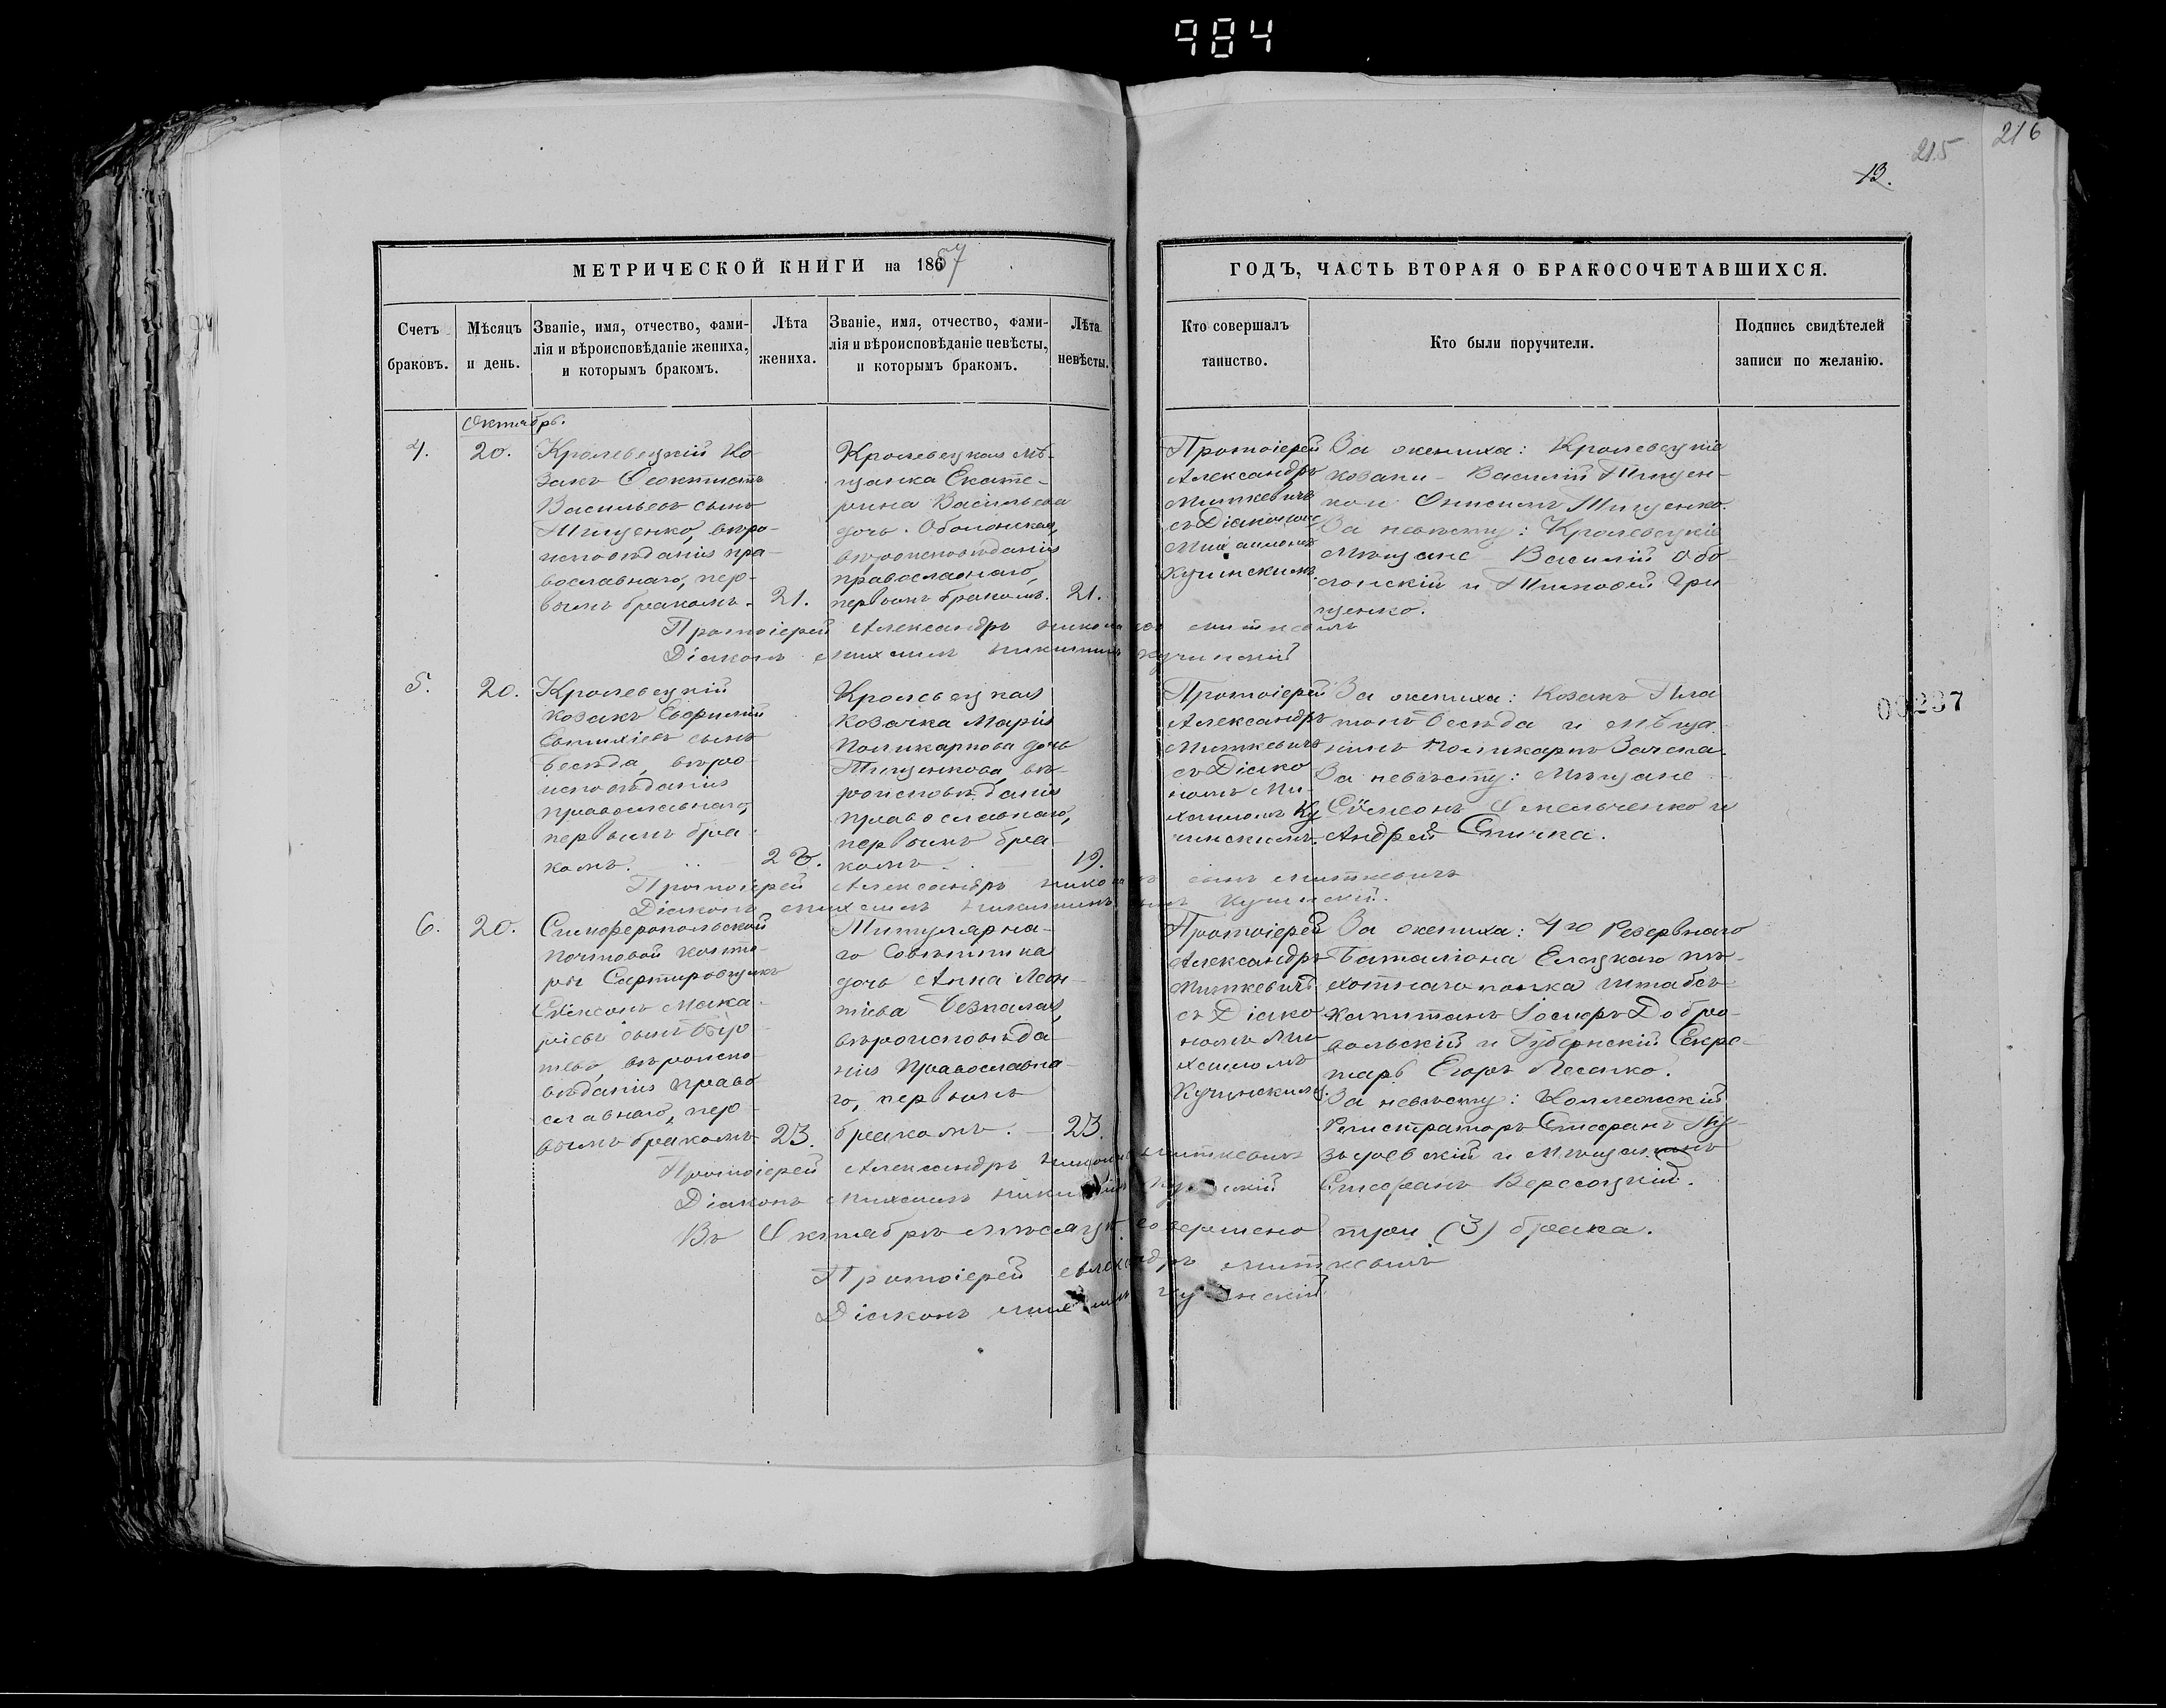 984
216
215
13.
МЕТРИЧЕСКОЙ КНИГИ на 1867
ГОДЪ, ЧАСТЬ ВТОРАЯ О БРАКОСОЧЕТАВШИХСЯ.
Счетъ браковъ.
Мѣсяцъ и день.
Званіе, имя, отчество, фами-
лія и вѣроисповѣданіе жениха,
и которымъ бракомъ.
Лѣта
жениха.
Званіе, имя, отчество, фами-
лія и вѣроисповѣданіе невѣсты,
и которымъ бракомъ.
Лѣта
невѣсты.
Кто совершалъ
таинство.
Кто были поручители.
Подпись свидѣтелей
записи по желанію.
Октябрь.
4.
20.
Кролевецкій Ко-
закъ Феоктистъ
Васильевъ сынъ
Тищенко, вѣро-
исповѣданія пра-
вославнаго, пер-
вымъ бракомъ.
21.
Кролевецкая Мѣ-
щанка Екате-
рина Васильева
дочь Оболонская,
вѣроисповѣданія
православнаго,
первымъ бракомъ.
21.
Протоіерей
Александръ
Миткевичъ
съ Діакономъ
Михаиломъ
Кучинскимъ.
За жениха: Кролевецкіе
козаки Василій Тищен-
ко и Онисимъ Тищенко.
За невѣсту: Кролевецкіе
Мѣщане Василій Обо-
лонскій и Тимофей Гри
щенко.
Протоіерей Александръ Миткевичъ
Діаконъ Михаилъ Кучинскій
5.
20.
Кролевецкій
козакъ Евфимій
Евтихіевъ сынъ
Бесѣда, вѣро-
исповѣданія
православнаго,
первымъ бра-
комъ.
Кролевецкая
Козачка Марія
Поликарпова дочь
Тищенкова, вѣ-
роисповѣданія
православнаго,
первымъ бра-
комъ.
19.
Протоіерей
Александръ
Миткевичъ
съ Діако
номъ Ми-
хаиломъ Ку
чинскимъ.
За жениха: Козакъ Пла
тонъ Бесѣда и Мѣща-
нинъ Поликарпъ
За невѣсту: Мѣщане
Сѵмеонъ Омельченко и
Андрей Спичка.
Протоіерей Александръ сынъ Миткевичъ
Діаконъ Михаилъ Кучинскій.
6.
20.
Симферопольской
почтовой конто-
ры Сортировщикъ
Сѵмеонъ Мака-
ріевъ сынъ
вѣроиспо-
вѣданія право
славнаго, пер-
вымъ бракомъ
23.
Титулярна-
го Совѣтника
дочь Анна Леон-
тіева
вѣроисповѣда-
нія православна-
го, первымъ
бракомъ.
23.
Протоіерей
Александръ
Миткевичъ
съ Діако
номъ Ми
хаиломъ
Кучинскимъ.
За жениха: 4го Резервнаго
Баталіона Елецкаго пѣ-
хотнаго полка штабсъ-
капитанъ Іосифъ Добро-
вольскій и Губернскій Секре-
тарь Егоръ
За невѣсту: Коллежскій
Регистраторъ Стефанъ Пу-
зыревскій и Мѣщанинъ
Стефанъ Вересоцкій.
Протоіерей Александръ Миткевичъ
Діаконъ Михаилъ Кучинскій
Въ Октябрѣ мѣсяцѣ совершено три (3) брака.
Протоіерей Александръ Миткевичъ
Діаконъ Михаилъ Кучинскій
00237